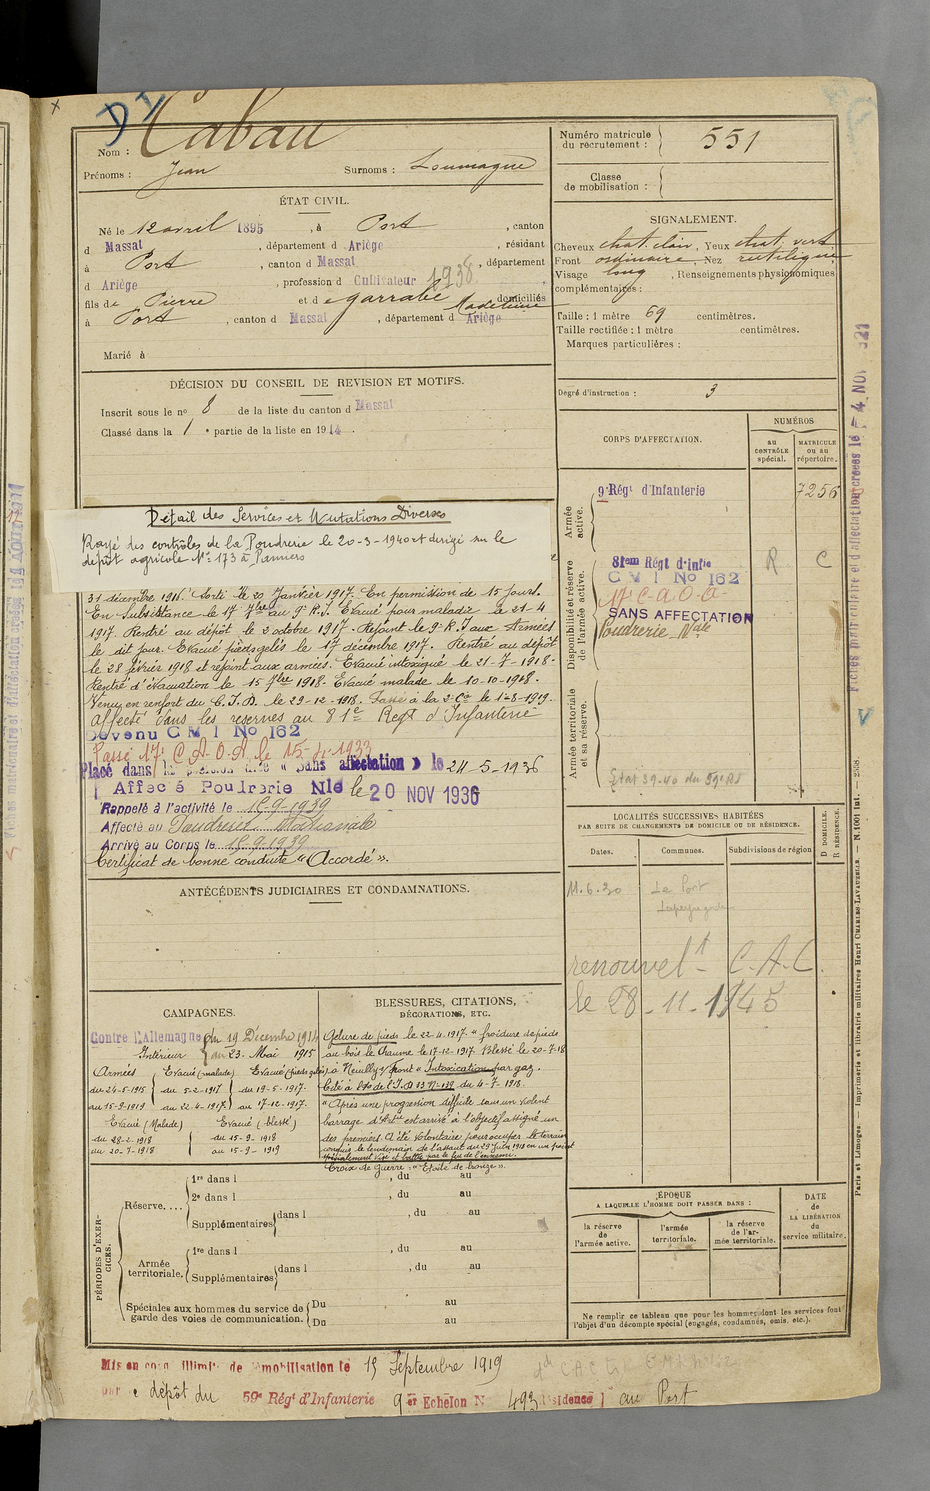 Nom : Cabau
Prénoms : Jean Surnoms : Loumagne
ÉTAT CIVIL.
Né le 12 avril 1895, à Port, canton
d Massat, département d Ariège, résidant
à Port, canton d Massat, département
d Ariège, profession d Cultivateur 1938
fils de Pierre et d e garrabé Madeleine domiciliés
à Port, canton d Massat, département d Ariège
Marié à
DÉCISION DU CONSEIL DE REVISION ET MOTIFS.
Inscrit sous le no 8 de la liste du canton d Massat
Classé dans la 1 e partie de la liste en 1914.
Détail des Services et Mutations Diverses
Rayé des contrôles de la Poudrerie le 20-3-1940 et dirigé sur le
dépôt agricole No 173 à Pamiers
31 décembre 1916. Sorti le 20 Janvier 1917. En permission de 15 jours.
En Subsistance le 17 7bre au 9e R.I. Evacué pour maladie le 21-4
1917. Rentré au dépôt le 2 octobre 1917. Rejoint le 9e R.I aux Armées
le dit jour. Evacué pieds gelés le 17 décembre 1917. Rentré au dépôt
le 28 février 1918 et rejoint aux armées. Evacué intoxiqué le 21-7-1918.
Rentré d'évacuation le 15 7bre 1918. Evacué malade le 10-10-1918.
Venu en renfort du C.I.D. le 29-12-1918. Passé à la 2e Cie le 1-8-1919.
Affecté dans les réserves au 81e Regt d'Infanterie
Devenu C M I No 162
Passé 17e C.A.O.A le 15-4-1933
Placé dans la position dite « Sans affectation » le 24-5-1936
Affecé Poudrerie Nle le 20 NOV 1936
Rappelé à l'activité le 15-9-1939
Affecté au Poudrerie Nationale
Arrivé au Corps le 15-9-1939
Certificat de bonne conduite "Accordé".
ANTÉCÉDENTS JUDICIAIRES ET CONDAMNATIONS.
CAMPAGNES.
Contre l'Allemagne du 19 Décembre 1914
Intérieur au 23 Mai 1915
Armées Evacué (malade) Evacué (pieds gelés)
du 24-5-1915 du 5-2-1917 du 19-5-1917.
au 15-9-1919 au 22-4-1917 au 17-12-1917.
Evacué (Malade) Evacué (blessé)
du 28-2-1918 du 15-9-1918
au 20-7-1918 au 15-9-1919
BLESSURES, CITATIONS,
DÉCORATIONS, ETC.
Gelure de pieds le 22-4-1917. "froidure de pieds
au bois le Chaume le 17-12-1917. Blessé le 20-7-18
à Neuilly s/ front "Intoxication par gaz.
Cité à l'Ordre de l'I.D 13 No 139 du 4-7-1918.
"Après une progression difficile sous un violent
barrage d'Artie est arrivé à l'objectif assigné un
des premiers. A été volontaire pour occuper le terrain
conquis le lendemain de l'assaut du 29 Juin 1918 en un point
spécialement visé et battu par le feu de l'ennemi.
Croix de Guerre : "Etoile de bronze".
PÉRIODES D'EXERCICES.
Réserve. ... 1re dans l , du au
2e dans l , du au
Supplémentaires dans l , du au
Armée territoriale. 1re dans l , du au
Supplémentaires dans l , du au
Spéciales aux hommes du service de garde des voies de communication. Du au
Du au
Mis en congé illimité de démobilisation le 15 Septembre 1919
par le dépôt du 59e Régt d'Infanterie 9er Echelon No 493 Résidence au Port
Numéro matricule du recrutement : 551
Classe de mobilisation :
SIGNALEMENT.
Cheveux chat. clair, Yeux chat. verts
Front ordinaire, Nez rectiligne
Visage long, Renseignements physionomiques
complémentaires :
Taille : 1 mètre 69 centimètres.
Taille rectifiée : 1 mètre centimètres.
Marques particulières :
Degré d'instruction : 3
CORPS D'AFFECTATION.
NUMÉROS
au CONTRÔLE spécial.
MATRICULE ou au répertoire.
Armée active.
9e Régt d'Infanterie 7256
Disponibilité et réserve de l'armée active.
81eme Régt d'Infie R C
C M I No 162
17e C.A.O.A.
SANS AFFECTATION
Poudrerie Nale
Armée territoriale et sa réserve.
Etat 39-40 du 59e RI
LOCALITÉS SUCCESSIVES HABITÉES
PAR SUITE DE CHANGEMENTS DE DOMICILE OU DE RÉSIDENCE.
Dates. Communes. Subdivisions de région D DOMICILE. R RÉSIDENCE.
11.6.30 Le Port
renouvelt C.A.C.
le 28-11-1945
ÉPOQUE
A LAQUELLE L'HOMME DOIT PASSER DANS :
la réserve de l'armée active.
l'armée territoriale.
la réserve de l'armée territoriale.
DATE de LA LIBÉRATION du service militaire.
Ne remplir ce tableau que pour les hommes dont les services font
l'objet d'un décompte spécial (engagés, condamnés, omis, etc.).
Fiches matriculaire et d'affectation créées le 4 NOV 1921
Paris et Limoges. — Imprimerie et librairie militaires Henri CHARLES-LAVAUZELLE. — N. 1001 Int. — 2538.